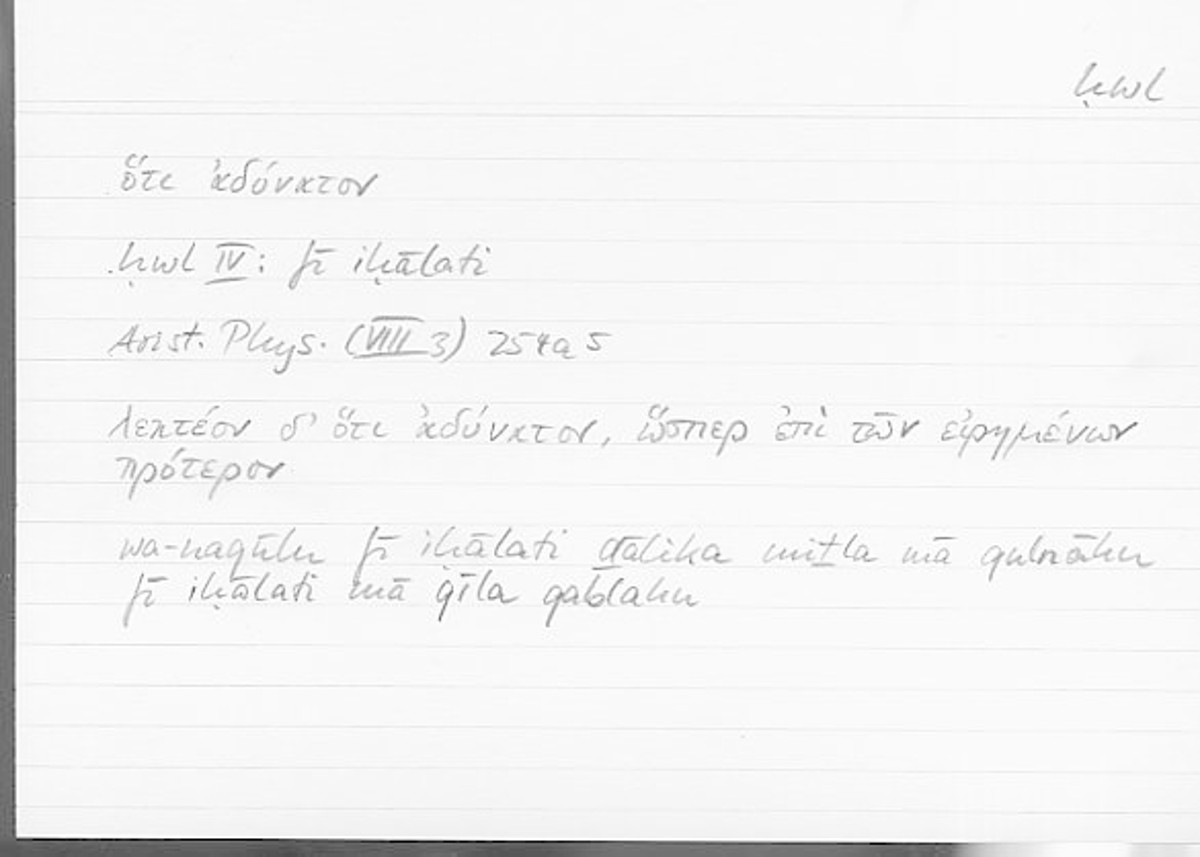 ḥwl
ὅτι ἀδύνατον
ḥwl IV: fī iḥālati
Arist. Phys. (VIII 3) 254a5
λεκτέον δ' ὅτι ἀδύνατον, ὥσπερ ἐπὶ τῶν εἰρημένων
πρότερον
wa-naqūlu fī iḥālati ḏālika miṯla mā qulnāhu
fī iḥālati mā qīla qablahu